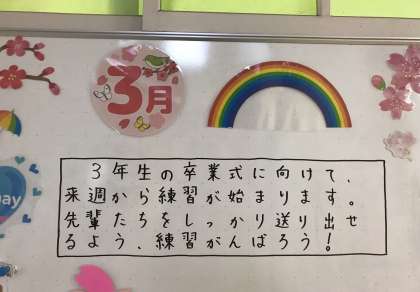 3月
3年生の卒業式に向けて、
来週から練習が始まります。
先輩たちをしっかり送り出せ
るよう、練習がんばろう!
ay